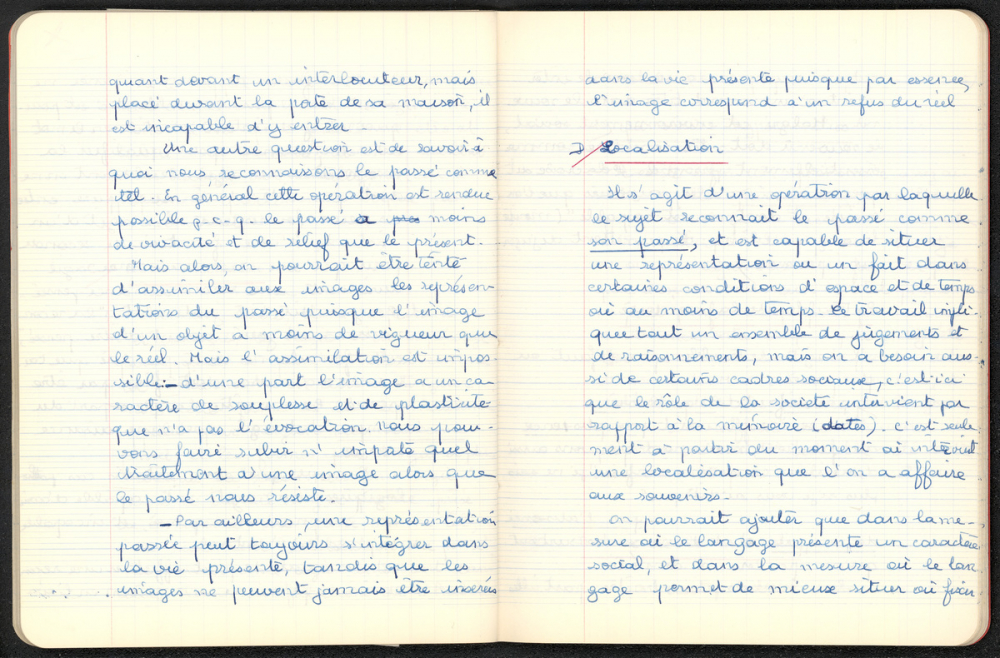 quant devant un interlocuteur, mais
placé durant la porte de sa maison, il
est incapable d'y entrer
Une autre question est de savoir à
quoi nous reconnaissons le passé comme
tel. En général cette opération est rendue
possible p-c-q. le passé a moins
de vivacité et de relief que le présent.
Mais alors, on pourrait être tenté
d'assimiler aux images les représen-
tations du passé puisque l'image
d'un objet a moins de vigueur que
le réel. Mais l'assimilation est impos-
sible:- d'une part l'image a un ca-
ractère de souplesse et de plasticité
que n'a pas l'évocation. nous pour-
vons faire subir n'importe quel
traitement à une image alors que
le passé nous résiste.
- Par ailleurs, une représentation
passée peut toujours s'intégrer dans
la vie présente, tandis que les
images ne peuvent jamais être insérées
dans la vie présente puisque par essence,
l'image correspond à un refus du réel
D/ Localisation
Il s'agit d'une opération par laquelle
le sujet reconnait le passé comme
son passé, et est capable de situer
une représentation ou un fait dans
certaines conditions d'espace et de temps
ou au moins de temps. Ce travail impli-
que tout un ensemble de jugements et
de raisonnements, mais on a besoin aus-
si de certains cadres sociaux, c'est ici
que le rôle de la société intervient par
rapport à la mémoire (dates). C'est seule
ment à partir du moment où intervient
une localisation que l'on a affaire
aux souvenirs.
On pourrait ajouter que dans la me-
sure où le langage présente un caractère
social, et dans la mesure où le lan
gage permet de mieux situer ou fixer